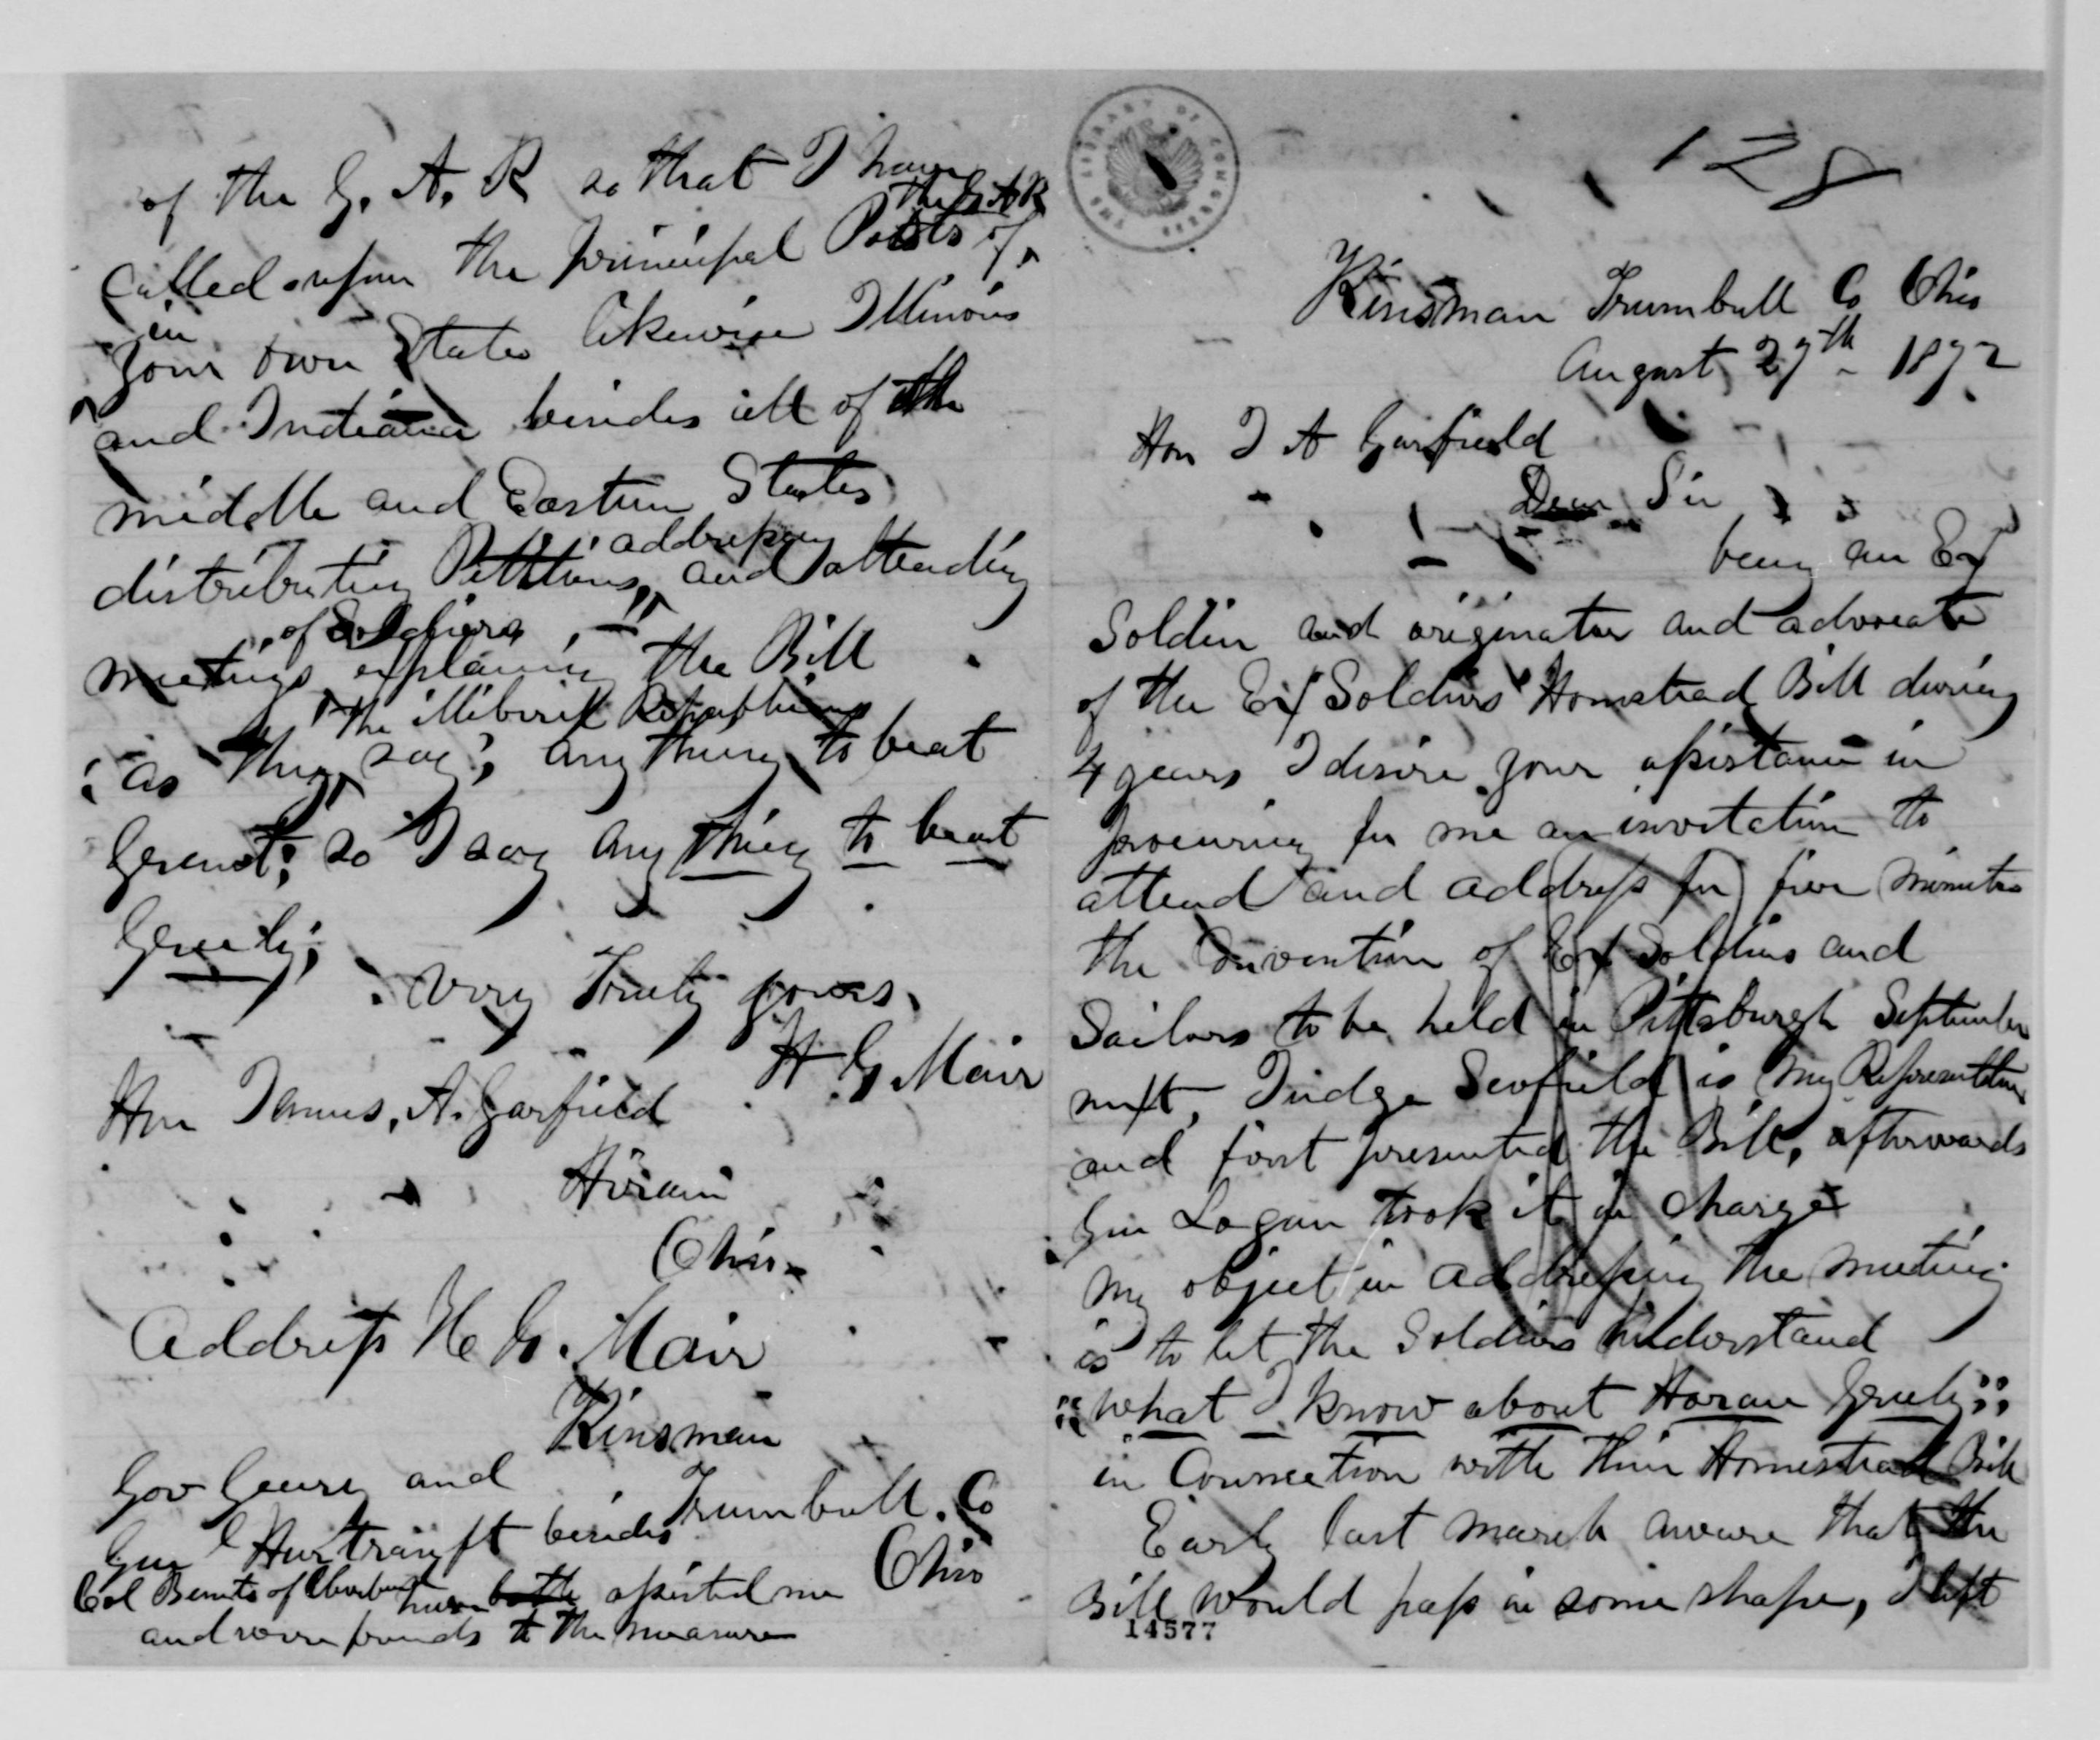 128
Kinsman Trumbull Co Ohio
August 27th - 1872
Hon J A Garfield
Dear Sir
being an Ex
Soldier and originator and advocate
of the Ex Soldiers Homstead Bill during
4 years I desire your assistance in
procuring for me an invitation to
attend and address for five minutes
the Convention of Ex Soldiers and
Sailors to be held in Pittsburgh September
next, Judge Scofield is my Representative
and first presented the Bill, afterwards
Gen Logan took it in charge
my object in addressing the meeting
is to let the Soldiers understand
"what I know about Horace Greely"
in Connection with their Homestead Bill
Early last march aware that the
Bill would pass in some shape, I left
14577
of the G. A. R so that I have
called upon the principal Posts of the G A R
in your own State likewise Illinois
and Indiana besides all of the
middle and Eastern States
distributing Petitions, addressing and attending
meetings of Soldiers explaining the Bill
as they the illiberal Republicans say; any thing to beat
Grant; so I say any thing to beat
Greely;
Very Truly yours
H G Mair
Hon James, A. Garfield
Hiram
Ohio
Address H G. Mair
Kinsman
Trumbull. Co
Ohio
Gov Geary and
Gen Hartranft besides
Col of have both assisted me
and were friends to the measure
THE LIBRARY OF CONGRESS